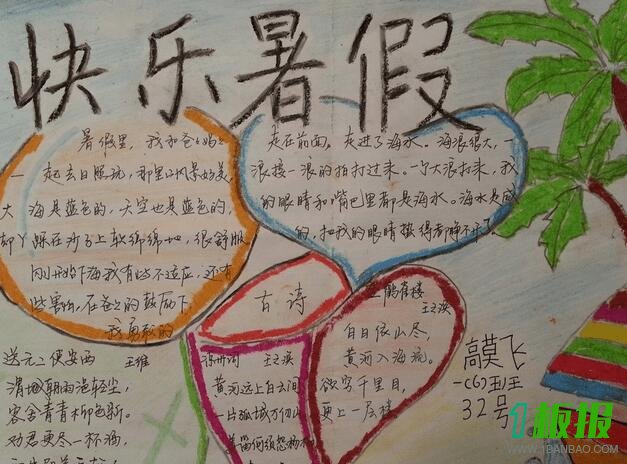 快乐暑假
暑假里，我和爸爸妈妈
一起去日照玩，那里的风景好美，
大海是蓝色的，天空也是蓝色的，
脚丫踩在沙子上软绵绵地，很舒服
刚开始下海我有些不适应，还有
些害怕，在爸爸的鼓励下，
我勇敢的
走在前面。走进了海水。海浪很大，一
浪接一浪的拍打过来。一个大浪打来，我
的眼睛和嘴巴里都是海水。海水是咸
的，把我的眼睛蛰得都睁不开了
古诗
送元二使安西 王维
渭城朝雨浥轻尘，
客舍青青柳色新。
劝君更尽一杯酒，
凉州词 王之涣
黄河远上白云间
一片孤城万仞山
登鹳雀楼
王之涣
白日依山尽，
黄河入海流。
欲穷千里目，
更上一层楼
高莫飞
32号
1板报
WWW.1BANBAO.COM